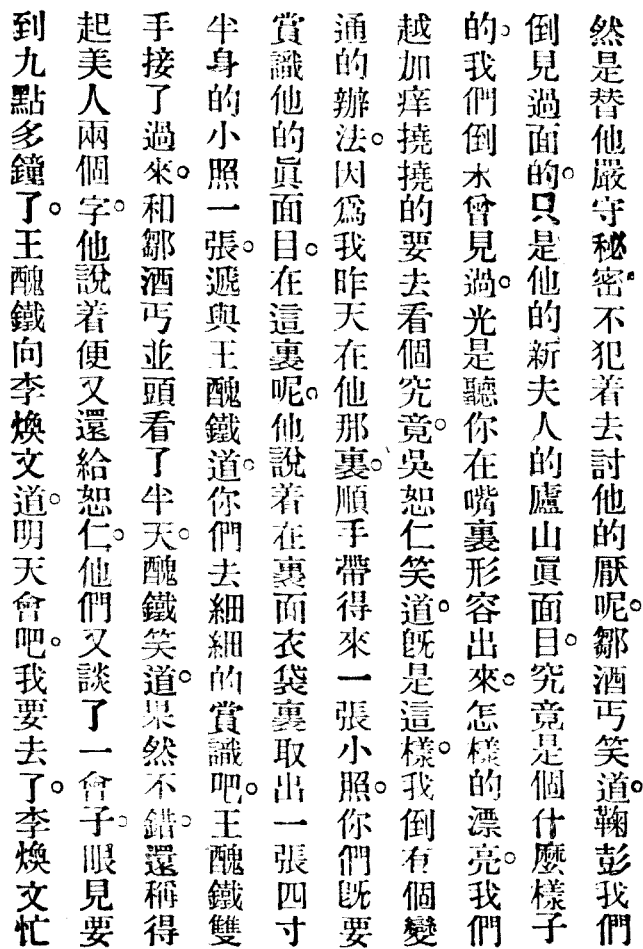 然是替他嚴守秘密。不犯着去討他的厭呢。鄒酒丐笑道。鞠彭我們
倒見過面的。只是他的新夫人的廬山眞面目。究竟是個什麼樣子
的。我們倒未曾見過。光是聽你在嘴裏形容出來。怎樣的漂亮。我們
越加痒撓撓的要去看個究竟。吳恕仁笑道。旣是這樣。我倒有個變
通的辦法。因爲我昨天在他那裏。順手帶得來一張小照。你們旣要
賞識他的眞面目。在這裏呢。他說着在裏面衣袋裏取出一張四寸
半身的小照一張。遞與王醜鐵道。你們去細細的賞識吧。王醜鐵雙
手接了過來。和鄒酒丐並頭看了半天。醜鐵笑道。果然不錯。還稱得
起美人兩個字。他說着便又還給恕仁。他們又談了一會子。眼見要
到九點多鐘了。王醜鐵向李煥文道。明天會吧。我要去了。李煥文忙